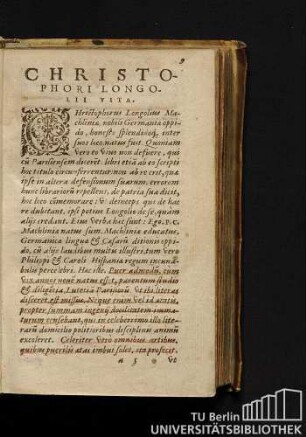 CHRISTO-
PHORI LONGO-
LII VITA.
CHristophorus Longolius Ma-
chlinia, nobili Germaniæ oppi-
do, honesto splendidoq́; inter
suos loco natus fuit. Quoniam
vero eo viuo non defuere, qui
eũ Parisiensem dicerẽt. libri etiã ab eo scripti
hoc titulo circunferrentur: non ab re erit, quæ
ipse in altera defensionum suarum, errorem
hunc librariorũ repellens, de patria sua dicit,
hoc loco cõmemorare: vt deinceps qui de hac
re dubitant, ipsi potius Longolio de se, quàm
alijs credant. Eius verba hæc sunt: Ego. P. C.
Machlinia natus sum. Machlinia educatus,
Germanica lingua & Cæsaris ditionis oppi-
do, cũ alijs laudibus multis illustri, tum vero
Philippi & Caroli Hispaniæ regum incuna-
bulis percelebre. Hæc ille. Puer admodũ, cum
vix annos nouẽ natus esset, parentum studio
& diligẽtia, Lutetiã Parisiorũ vt ibi literas
disceret, est missus. Neque enim vel ad ætatis,
propter summam ingenij docilitatem imma-
turum censebant, qui in celeberrimo illo lite-
rarũ domicilio politioribus disciplinis animũ
excoleret. Celeriter vero omnibus artibus,
quibus puerilis ætas imbui solet, ita profecit,
a 5 vt
TU Berlin
UNIVERSITÄTSBIBLIOTHEK